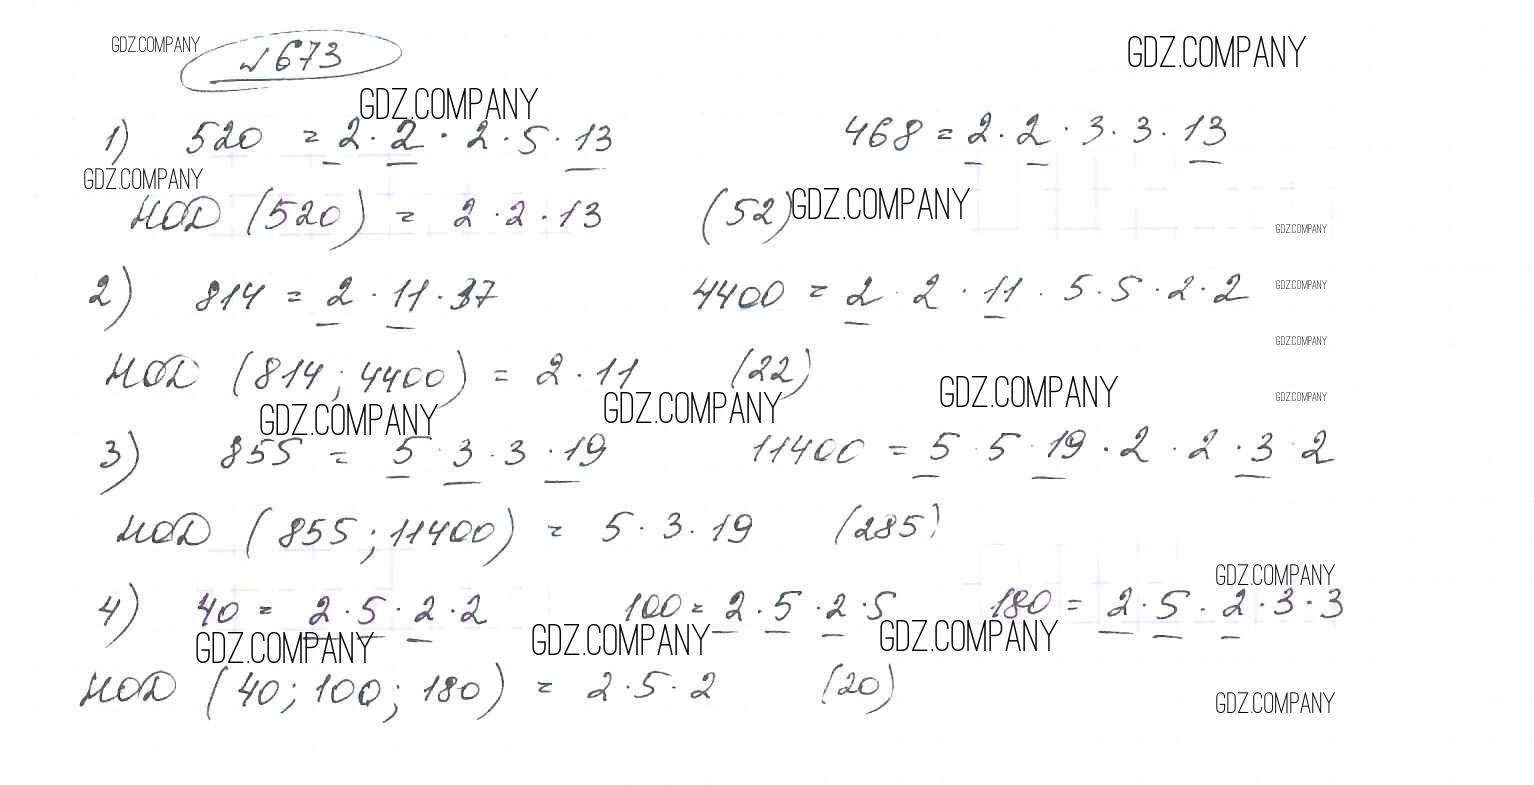 GDZ.COMPANY
№ 673
GDZ.COMPANY
GDZ.COMPANY
1) 520 = 2 · 2 · 2 · 5 · 13 468 = 2 · 2 · 3 · 3 · 13
GDZ.COMPANY
НОД (520) = 2 · 2 · 13 (52)
GDZ.COMPANY
GDZ.COMPANY
2) 814 = 2 · 11 · 37 4400 = 2 · 2 · 11 · 5 · 5 · 2 · 2
GDZ.COMPANY
GDZ.COMPANY
НОД (814; 4400) = 2 · 11 (22)
GDZ.COMPANY
GDZ.COMPANY
GDZ.COMPANY
GDZ.COMPANY
3) 855 = 5 · 3 · 3 · 19 11400 = 5 · 5 · 19 · 2 · 2 · 3 · 2
НОД (855; 11400) = 5 · 3 · 19 (285)
GDZ.COMPANY
4) 40 = 2 · 5 · 2 · 2 100 = 2 · 5 · 2 · 5 180 = 2 · 5 · 2 · 3 · 3
GDZ.COMPANY
GDZ.COMPANY
GDZ.COMPANY
НОД (40; 100; 180) = 2 · 5 · 2 (20)
GDZ.COMPANY